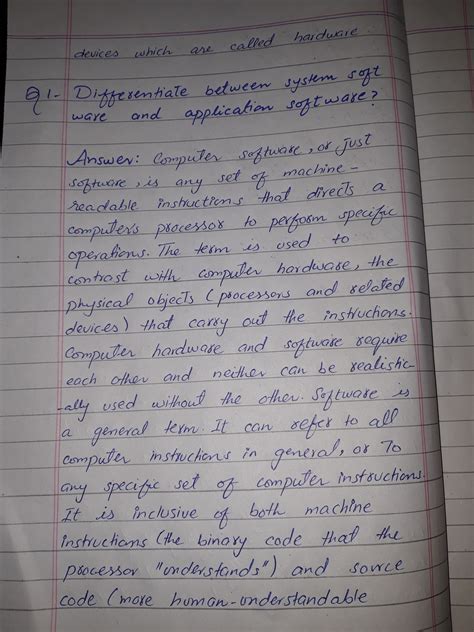 devices which are called hardware
Q1- Differentiate between system soft
ware and application software?
Answer: Computer software, or just
software, is any set of machine-
readable instructions that directs a
computer's processor to perform specific
operations. The term is used to
contrast with computer hardware, the
physical objects (processors and related
devices) that carry out the instructions.
Computer hardware and software require
each other and neither can be realistic-
-ally used without the other. Software is
a general term. It can refer to all
computer instructions in general, or To
any specific set of computer instructions.
It is inclusive of both machine
instructions (the binary code that the
processor "understands") and source
code (more human-understandable